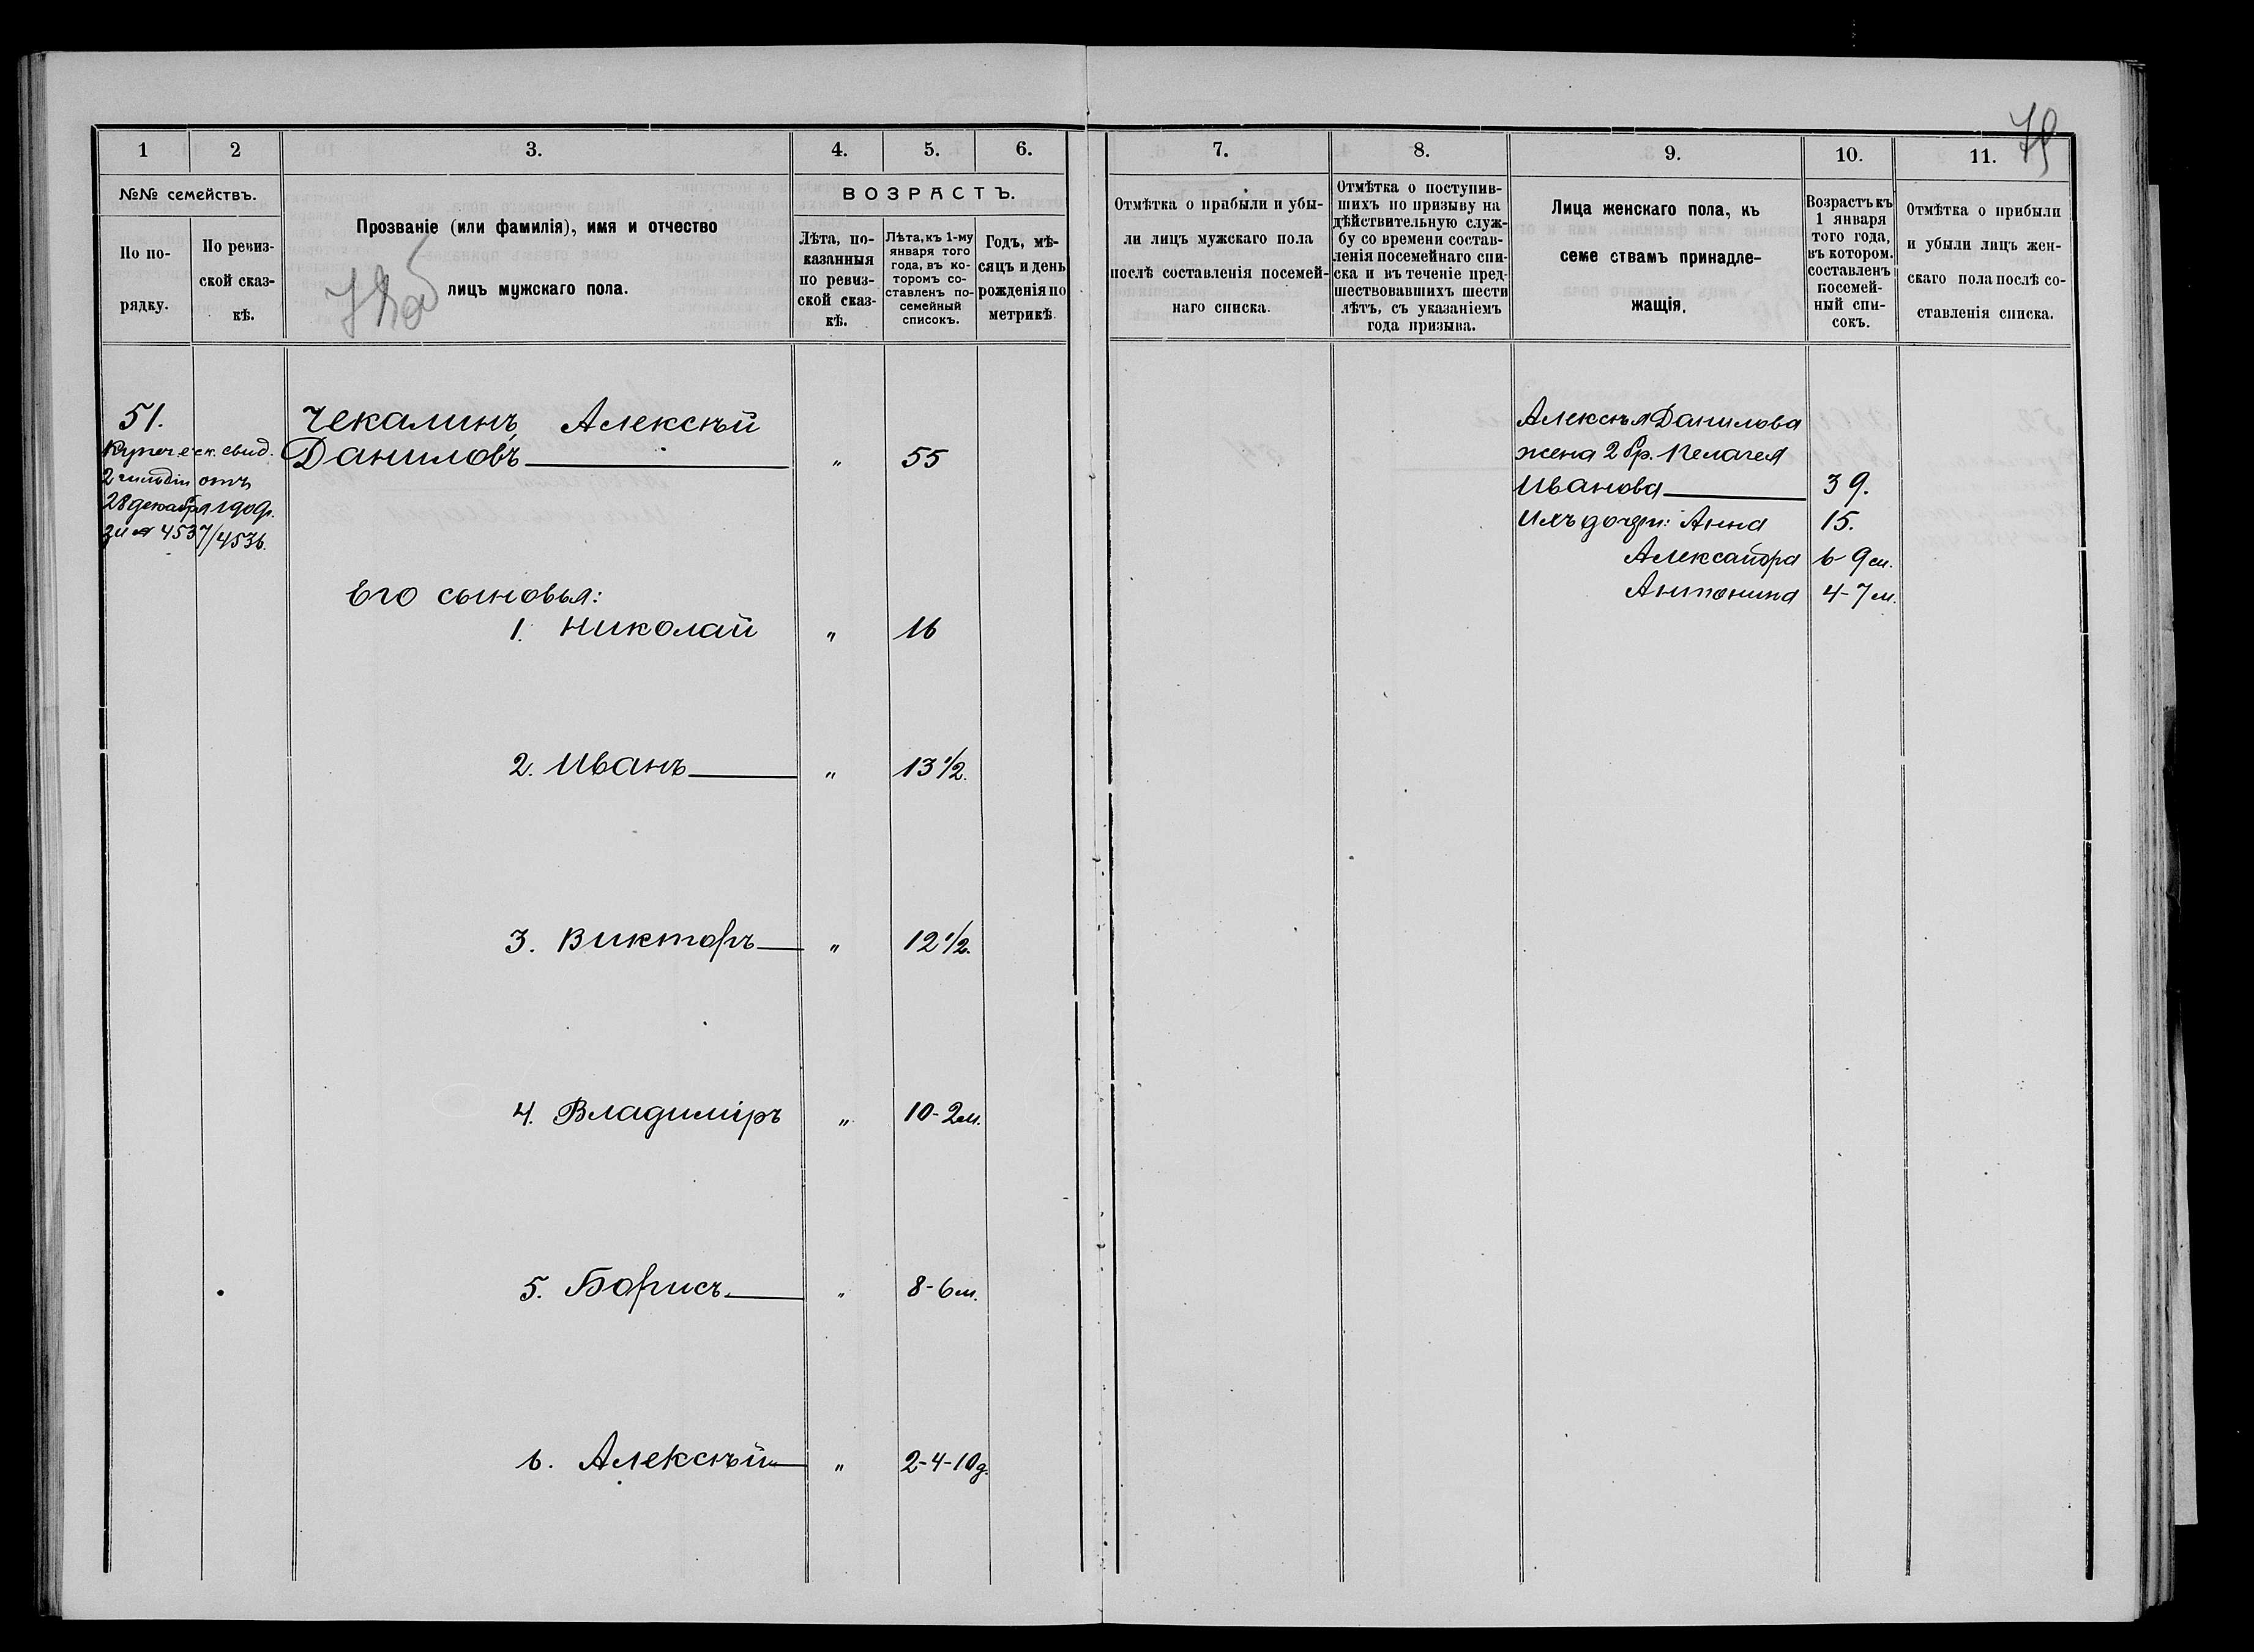 79
1
2
3.
4.
5.
6.
№№ семействъ.
По по-
рядку.
По ревиз-
ской сказ-
кѣ.
Прозваніе (или фамилія), имя и отчество
лицъ мужскаго пола.
ВОЗРАСТЪ.
Лѣта, по-
казанныя
по ревиз-
ской сказ-
кѣ.
Лѣта, къ 1-му
января того
года, въ ко-
торомъ со-
ставленъ по-
семейный
списокъ.
Годъ, мѣ-
сяцъ и день
рожденія по
метрикѣ.
51.
Купеческ. свид.
2 гильдіи отъ
28 декабря 190
за № 4537/4536.
Чекалинъ, Алексѣй
Даниловъ " 55
Его сыновья:
1. Николай " 16
2. Иванъ " 13 1/2.
3. Викторъ " 12 1/2.
4. Владиміръ " 10-2 м.
5. Борисъ " 8-6 м.
6. Алексѣй " 2-4-10 д.
7.
8.
9.
10.
11.
Отмѣтка о прибыли и убы-
ли лицъ мужскаго пола
послѣ составленія посемей-
наго списка.
Отмѣтка о поступив-
шихъ по призыву на
дѣйствительную служ-
бу со времени состав-
ленія посемейнаго спи-
ска и въ теченіе пред-
шествовавшихъ шести
лѣтъ, съ указаніемъ
года призыва.
Лица женскаго пола, къ
семе ствамъ принадле-
жащія.
Возрастъ къ
1 января
того года,
въ котором.
составленъ
посемей-
ный спи-
сокъ.
Отмѣтка о прибыли
и убыли лицъ жен-
скаго пола послѣ со-
ставленія списка.
Алексѣя Данилова
жена 2 бр. Пелагея
Иванова 39.
Ихъ дочери: Анна 15.
Александра 6-9 м.
Антонина 4-7 м.